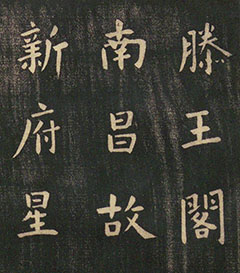 滕王閣
南昌故
新府星